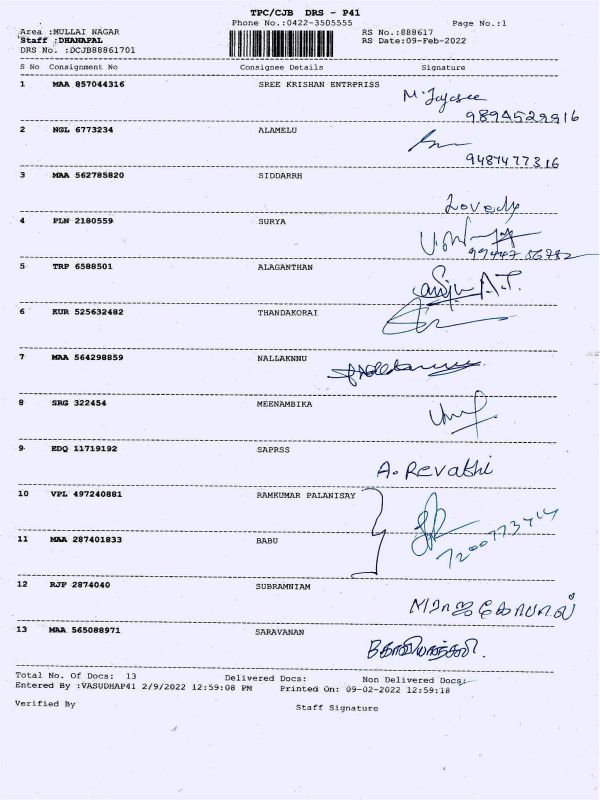 TPC/CJB DRS - P41
Phone No.:0422-3505555 Page No.:1
Area :MULLAI NAGAR RS No.:888617
Staff :DHANAPAL RS Date:09-Feb-2022
DRS No. :DCJB88861701
S No Consignment No Consignee Details Signature
1 MAA 857044316 SREE KRISHAN ENTRPRISS
M. Jayasee
9894529916
2 NGL 6773234 ALAMELU
9487477316
3 MAA 562785820 SIDDARRH
Lovely
4 PLN 2180559 SURYA
99447 56782
5 TRP 6588501 ALAGANTHAN
A.T.
6 KUR 525632482 THANDAKORAI
7 MAA 564298859 NALLAKNNU
8 SRG 322454 MEENAMBIKA
9 EDQ 11719192 SAPRSS
A. Revathi
10 VPL 497240881 RAMKUMAR PALANISAY
7200773414
11 MAA 287401833 BABU
12 RJP 2874040 SUBRAMNIAM
13 MAA 565088971 SARAVANAN
Total No. Of Docs: 13 Delivered Docs: Non Delivered Docs:
Entered By :VASUDHAP41 2/9/2022 12:59:08 PM Printed On: 09-02-2022 12:59:18
Verified By Staff Signature